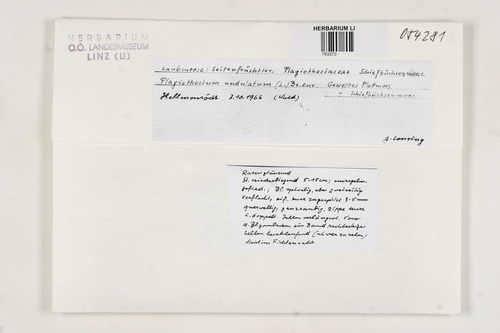 HERBARIUM
O.Ö. LANDESMUSEUM
LINZ (LI)
HERBARIUM LI
763370
054291
Laubmoose: Seitenfrüchtler: Plagiotheciaceae Schiefbüchsenmoose
Plagiothecium undulatum (L.) Br. eur. Gewelltes Plattmoos
" Schiefbüchsenmoos
Hellmonsödt 7.10.1966 (Wald)
A. Lonsing
Rasen glänzend
St. niederliegend 5-15 cm; unregelm.
gefied.; Bl. spiralig, aber zweizeilig
verflacht, eif. kurz zugespitzt 3-5 mm
querwellig; ganzrandig, Rippe kurz
u. doppelt. Zellen verlängert.
a. Blgrund ein Band rechteckige
Zellen
Fichtenwald